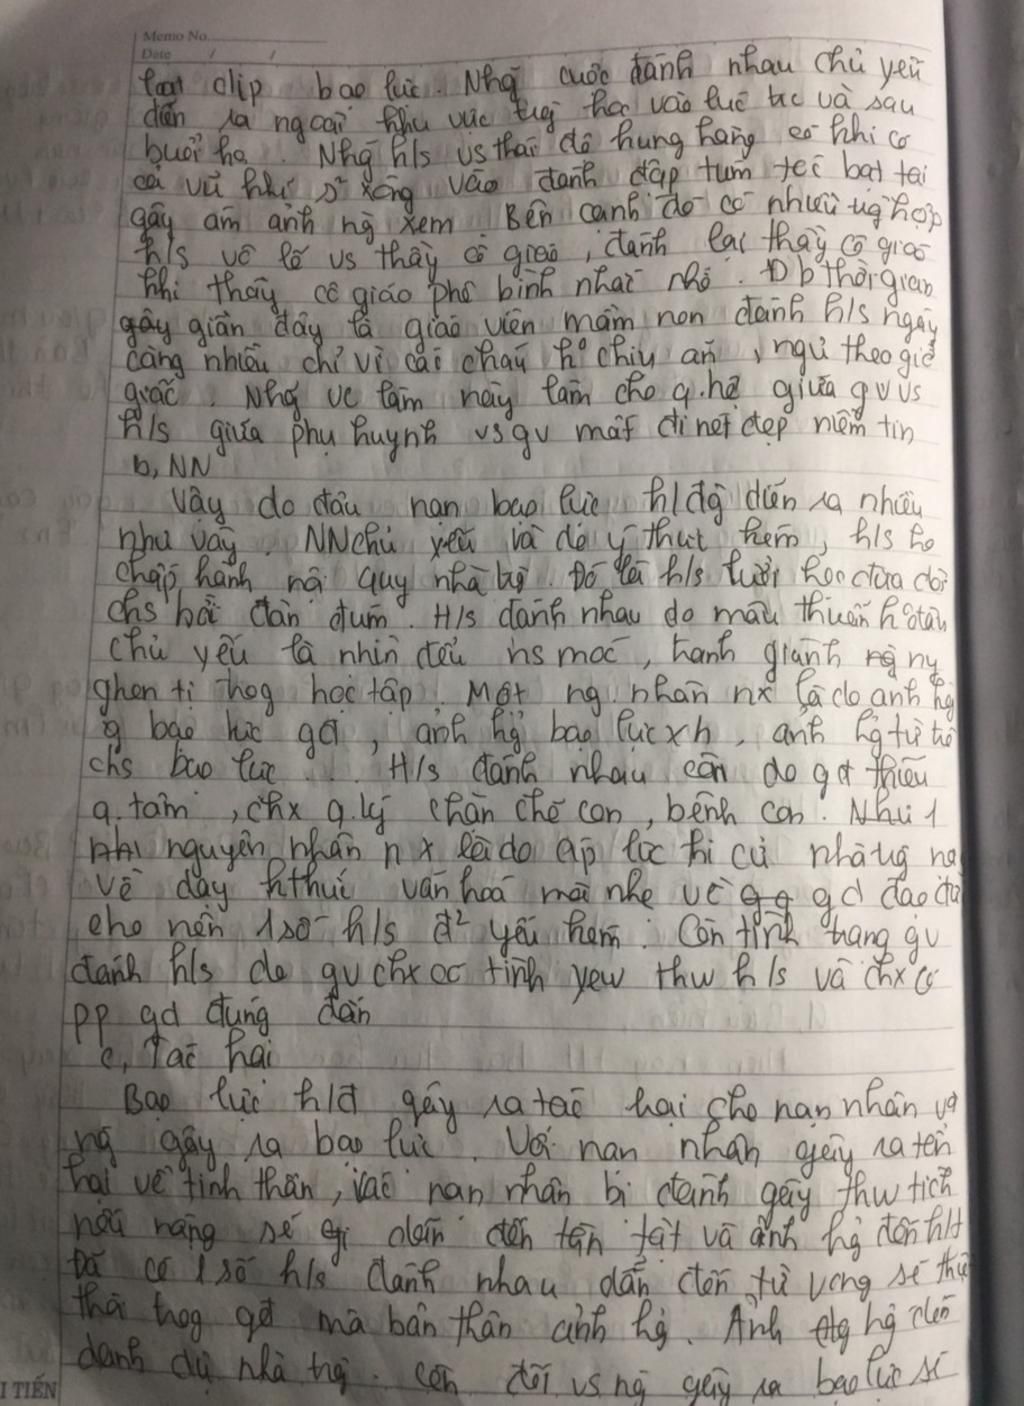 Memo No.
Date / /
loạt clip bạo lực. Nhg̃ cuộc đánh nhau chủ yếu
diễn ra ngoài khu vực trg̀ học vào lúc trc và sau
buổi họ. Nhg̃ h/s vs thái độ hung hăng có khi có
cả vũ khí xông vào đánh đập túm tóc bạt tai
gây ám ảnh ng̀ xem. Bên cạnh đó có nhiều trg̀ hợp
h/s vô lố vs thầy cô giáo, đánh lại thầy cô giáo
khi thầy cô giáo phê bình nhắc nhở. Đb thời gian
gây gần đây là giáo viên mầm non đánh h/s ngày
càng nhiều chỉ vì các cháu ho chịu ăn, ngủ theo giờ
giấc. Nhg̃ vc làm này làm cho q.hệ giữa gv vs
h/s giữa phụ huynh vs gv mất đi nét đẹp niềm tin
b, NN
Vậy do đâu nạn bạo lực h/đg̀ diễn ra nhiều
như vậy. NN chủ yếu là do ý thức kém, h/s ho
chấp hành nội quy nhà trg̀. Đó là h/s lười học đua đòi
chs bời đàn đúm. H/s đánh nhau do mâu thuẫn
chủ yếu là nhìn đểu, hành giành ny
ghen tị trog học tập. Một ng nhân nx là do ảnh hg̉
bạo lực gđ, ảnh hg̉ bạo lực xh, ảnh hg̉ từ trò
chs bạo lực... H/s đánh nhau còn do gđ thiếu
q.tâm, chx q.lý chặn chẽ con, bênh con. Như 1
nguyên nhân nx là do áp lực thi cử nhà trg̀
về dạy kthức văn hoá mà nhẹ về gd đạo đức
cho nên 1 số h/s đ² yếu kém. Còn tình trạng gv
đánh h/s do gv chx có tình yew thw h/s và chx có
pp gd đúng đắn
c, Tác hại
Bạo lực h/đ gây ra tác hại cho nạn nhân và
ng̀ gây ra bạo lực. Với nạn nhân gây ra tổn
hại về tinh thần, các nạn nhân bị đánh gây thw tích
nếu nặng sẽ dẫn đến tàn tật và ảnh hg̉ đến h/t
Đã có 1 số h/s đánh nhau dẫn đến tử vong sẽ
trog gđ mà bản thân ảnh hg̉. Ảnh hg̉ đến
danh dự nhà trg̀. Còn đối vs ng̀ gây ra bạo lực sẽ
I TIẾN